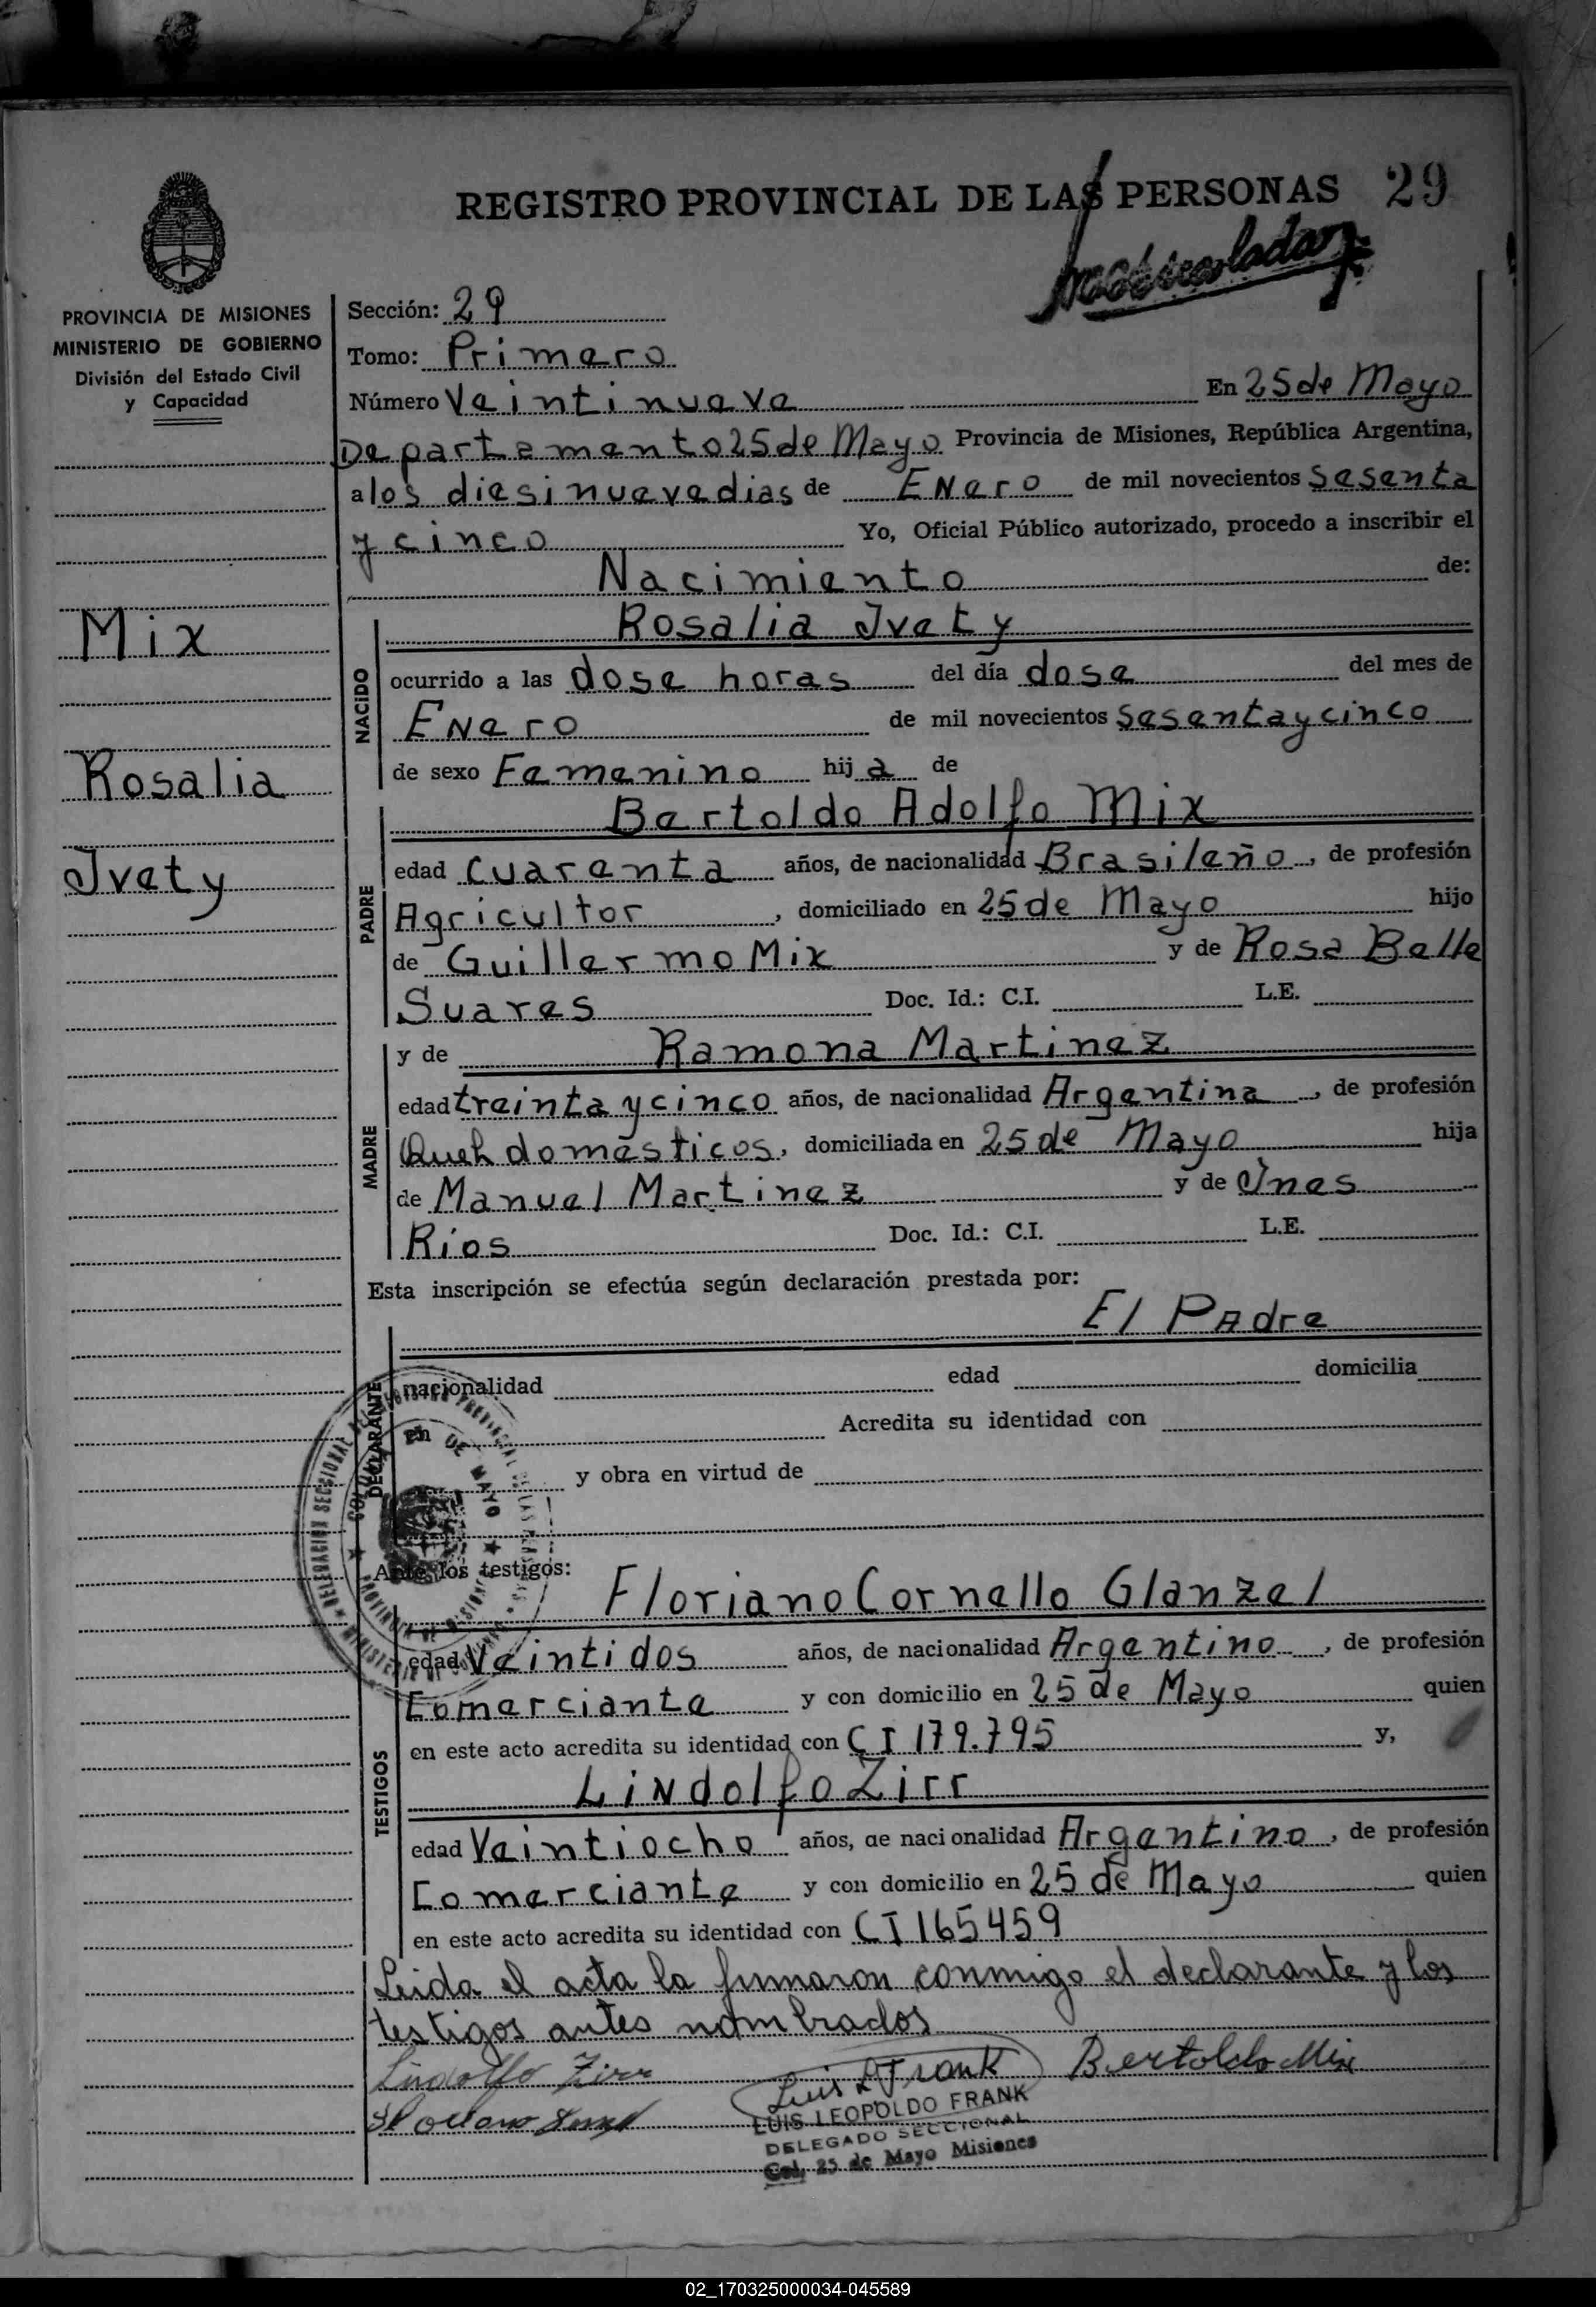 REGISTRO PROVINCIAL DE LAS PERSONAS 29
Matriculada
PROVINCIA DE MISIONES
MINISTERIO DE GOBIERNO
División del Estado Civil
y Capacidad
Mix
Rosalia
Ivety
Sección: 29
Tomo: Primero
Número Veintinueve En 25 de Mayo
Departamento 25 de Mayo Provincia de Misiones, República Argentina,
a los diesinueve dias de Enero de mil novecientos Sesenta
y cinco Yo, Oficial Público autorizado, procedo a inscribir el
Nacimiento de:
NACIDO
Rosalia Ivety
ocurrido a las dose horas del día dose del mes de
Enero de mil novecientos Sesenta y cinco
de sexo Femenino hij a de
PADRE
Bertoldo Adolfo Mix
edad cuarenta años, de nacionalidad Brasileño, de profesión
Agricultor, domiciliado en 25 de Mayo hijo
de Guillermo Mix y de Rosa Belle
Suares Doc. Id.: C.I. L.E.
MADRE
y de Ramona Martinez
edad treinta y cinco años, de nacionalidad Argentina, de profesión
Queh domésticos, domiciliada en 25 de Mayo hija
de Manuel Martinez y de Ines
Rios Doc. Id.: C.I. L.E.
Esta inscripción se efectúa según declaración prestada por:
El Padre
DECLARANTE
nacionalidad edad domicilia
en Acredita su identidad con
y obra en virtud de
Ante los testigos:
TESTIGOS
Floriano Cornello Glanzel
edad Veintidos años, de nacionalidad Argentino, de profesión
Comerciante y con domicilio en 25 de Mayo quien
en este acto acredita su identidad con CI 179.795 y,
Lindolfo Zirr
edad Veintiocho años, de nacionalidad Argentino, de profesión
Comerciante y con domicilio en 25 de Mayo quien
en este acto acredita su identidad con CI 165459
Leida el acta la firmaron conmigo el declarante y los
testigos antes nombrados
Lindolfo Zirr Luis L Frank Bertoldo Mix
LUIS LEOPOLDO FRANK
DELEGADO SECCIONAL
Col. 25 de Mayo Misiones
02_170325000034-045589